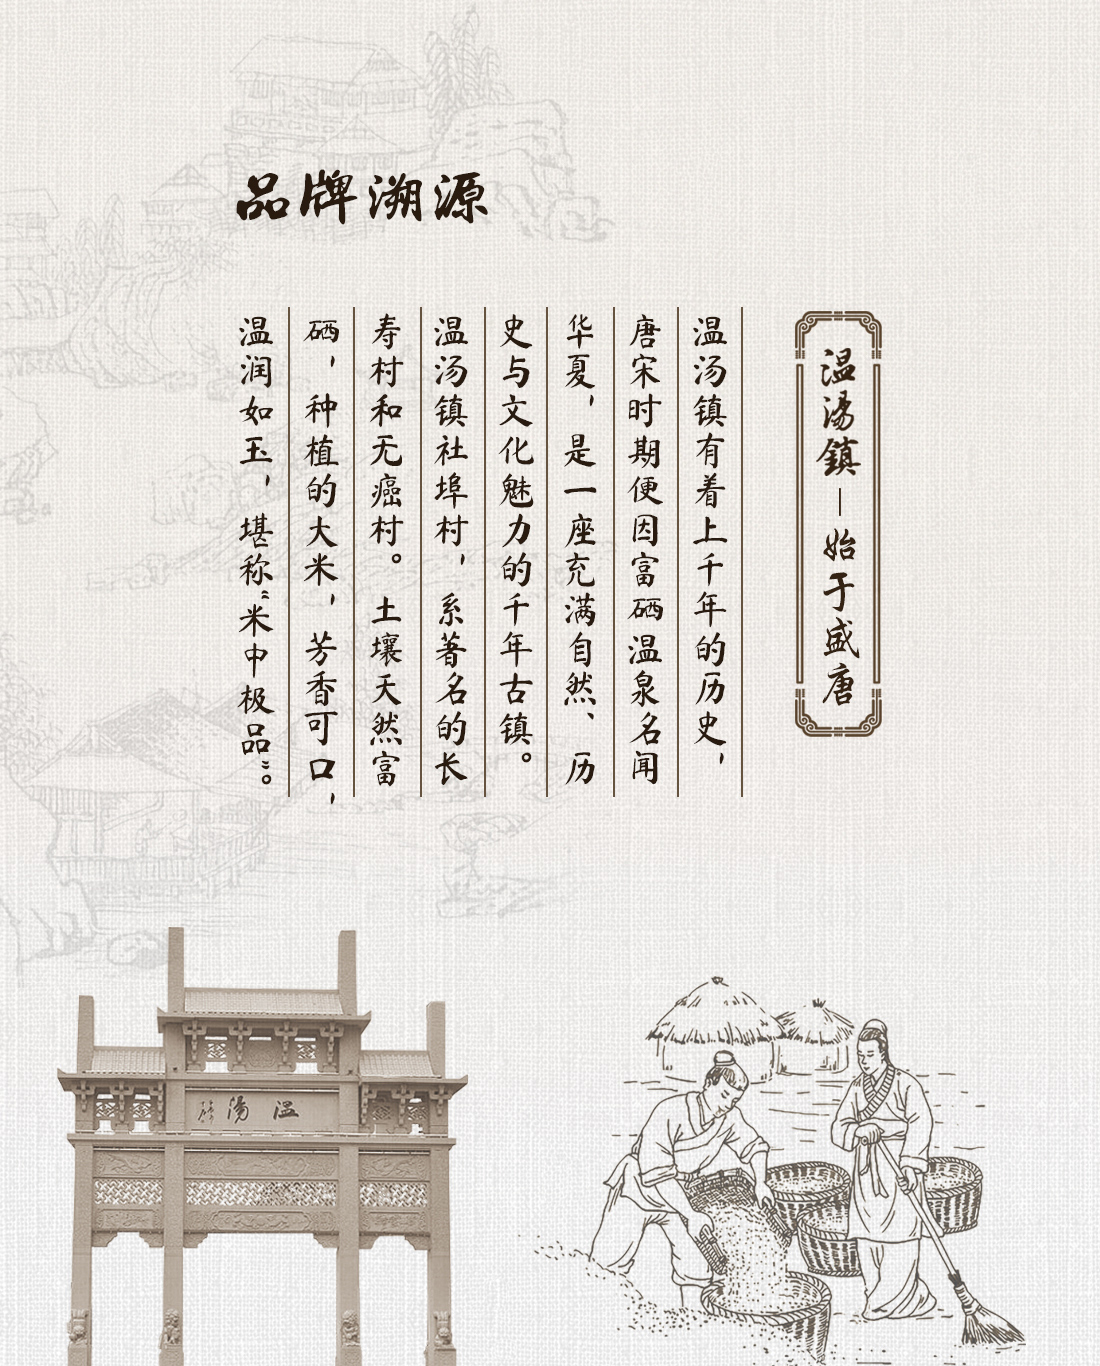 品牌溯源
温湯鎮—始于盛唐
温汤镇有着上千年的历史，
唐宋时期便因富硒温泉名闻
华夏，是一座充满自然、历
史与文化魅力的千年古镇。
温汤镇社埠村，系著名的长
寿村和无癌村。土壤天然富
硒，种植的大米，芳香可口，
温润如玉，堪称“米中极品”。
温湯鎮